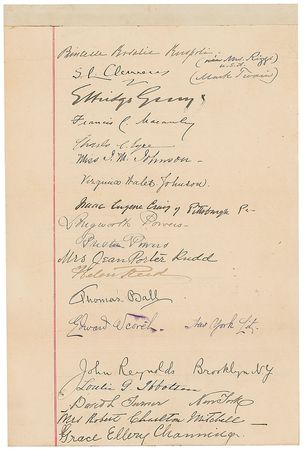 (now Mrs. Riggs
U.S.A.
S. L. Clemens (Mark Twain)
Elbridge Gerry
Francis C. Macauley
Charles C.
Miss I. M. Johnson -
Virginia Wales Johnson.
Isaac Eugene Craig of Pittsburgh Pa -
Longworth Powers -
Preston Powers
Mrs Jean Porter Rudd
Helen Rudd
Thomas Ball
Edward New York
John Reynolds Brooklyn N.Y
Louise G.
David Turner New York
Mrs Robert Charlton Mitchell -
Grace Ellery Channing.